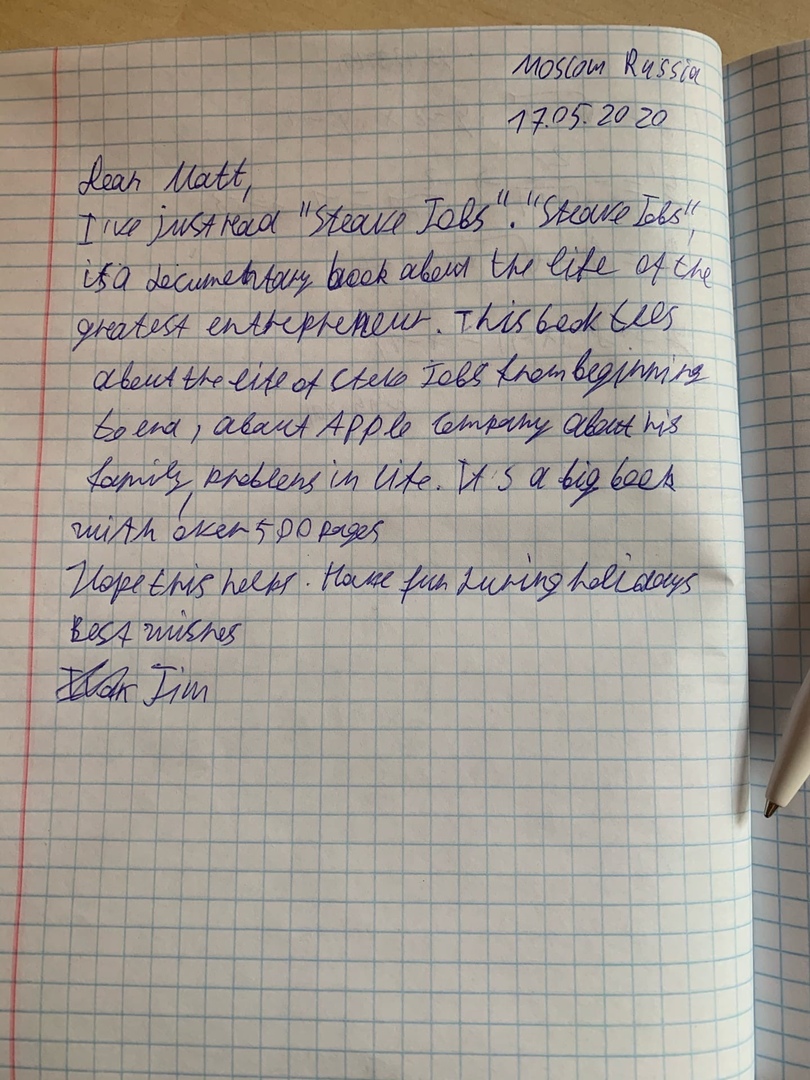 Moscow Russia
17.05.2020
Dear Matt,
I've just read "Steave Jobs". "Steave Jobs"
it's a documentary book about the life of the
greatest entrepreneur. This book tells
about the life of Steve Jobs from beginning
to end, about Apple Company about his
family, problems in life. It's a big book
with over 500 pages
Hope this helps. Have fun during holidays
Best wishes
Jim